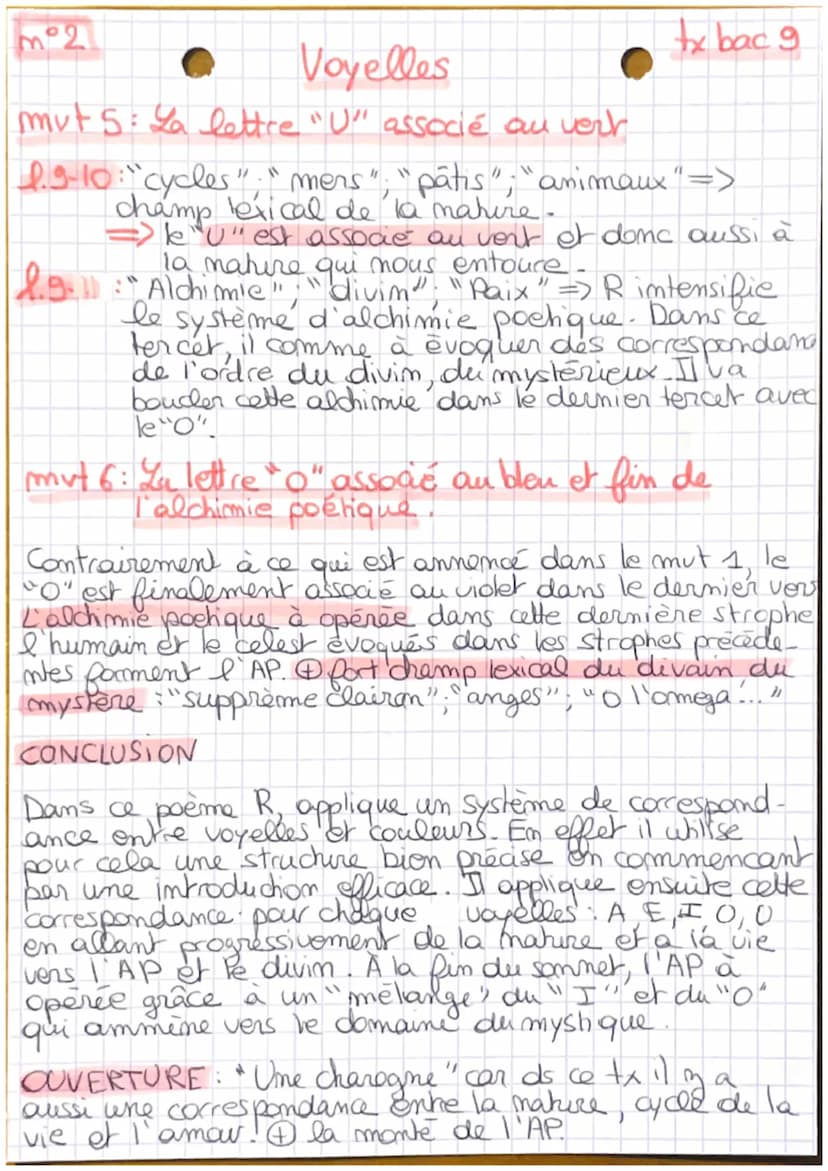 n°2
tx bac 9
Voyelles
mvt 5 : La lettre "U" associé au vert
l.9-10 : "cycles" ; "mers" ; "pâtis" ; "animaux" =>
champ lexical de la nature.
=> le "U" est associé au vert et donc aussi à
la nature qui nous entoure.
l.9-11 : "Alchimie" ; "divin" ; "Paix" => R intensifie
le système d'alchimie poétique. Dans ce
tercet, il comme à évoquer des correspondanc
de l'ordre du divin, du mystérieux. Il va
boucler cette alchimie dans le dernier tercet avec
le "O".
mvt 6 : La lettre "O" associé au bleu et fin de
l'alchimie poétique.
Contrairement à ce qui est annoncé dans le mvt 1, le
"O" est finalement associé au violet dans le dernier vers
L'alchimie poétique à opérée dans cette dernière strophe
l'humain et le celest évoqués dans les strophes précéde-
ntes forment l'AP. ⊕ fort champ lexical du divain du
mystère : "supprème clairon" ; "anges" ; "O l'omega..."
CONCLUSION
Dans ce poème R, applique un système de correspond-
ance entre voyelles et couleurs. En effet il utilise
pour cela une structure bien précise en commencant
par une introduction efficace. Il applique ensuite cette
correspondance pour chaque voyelles : A E, I O, U
en allant progressivement de la nature et a la vie
vers l'AP et le divin. À la fin du sonnet, l'AP à
opérée grâce à un "mélange" du "I" et du "O"
qui ammène vers le domaine du mystique.
OUVERTURE : "Une charogne" car ds ce tx il y a
aussi une correspondance entre la nature, cycle de la
vie et l'amour. ⊕ la monté de l'AP.